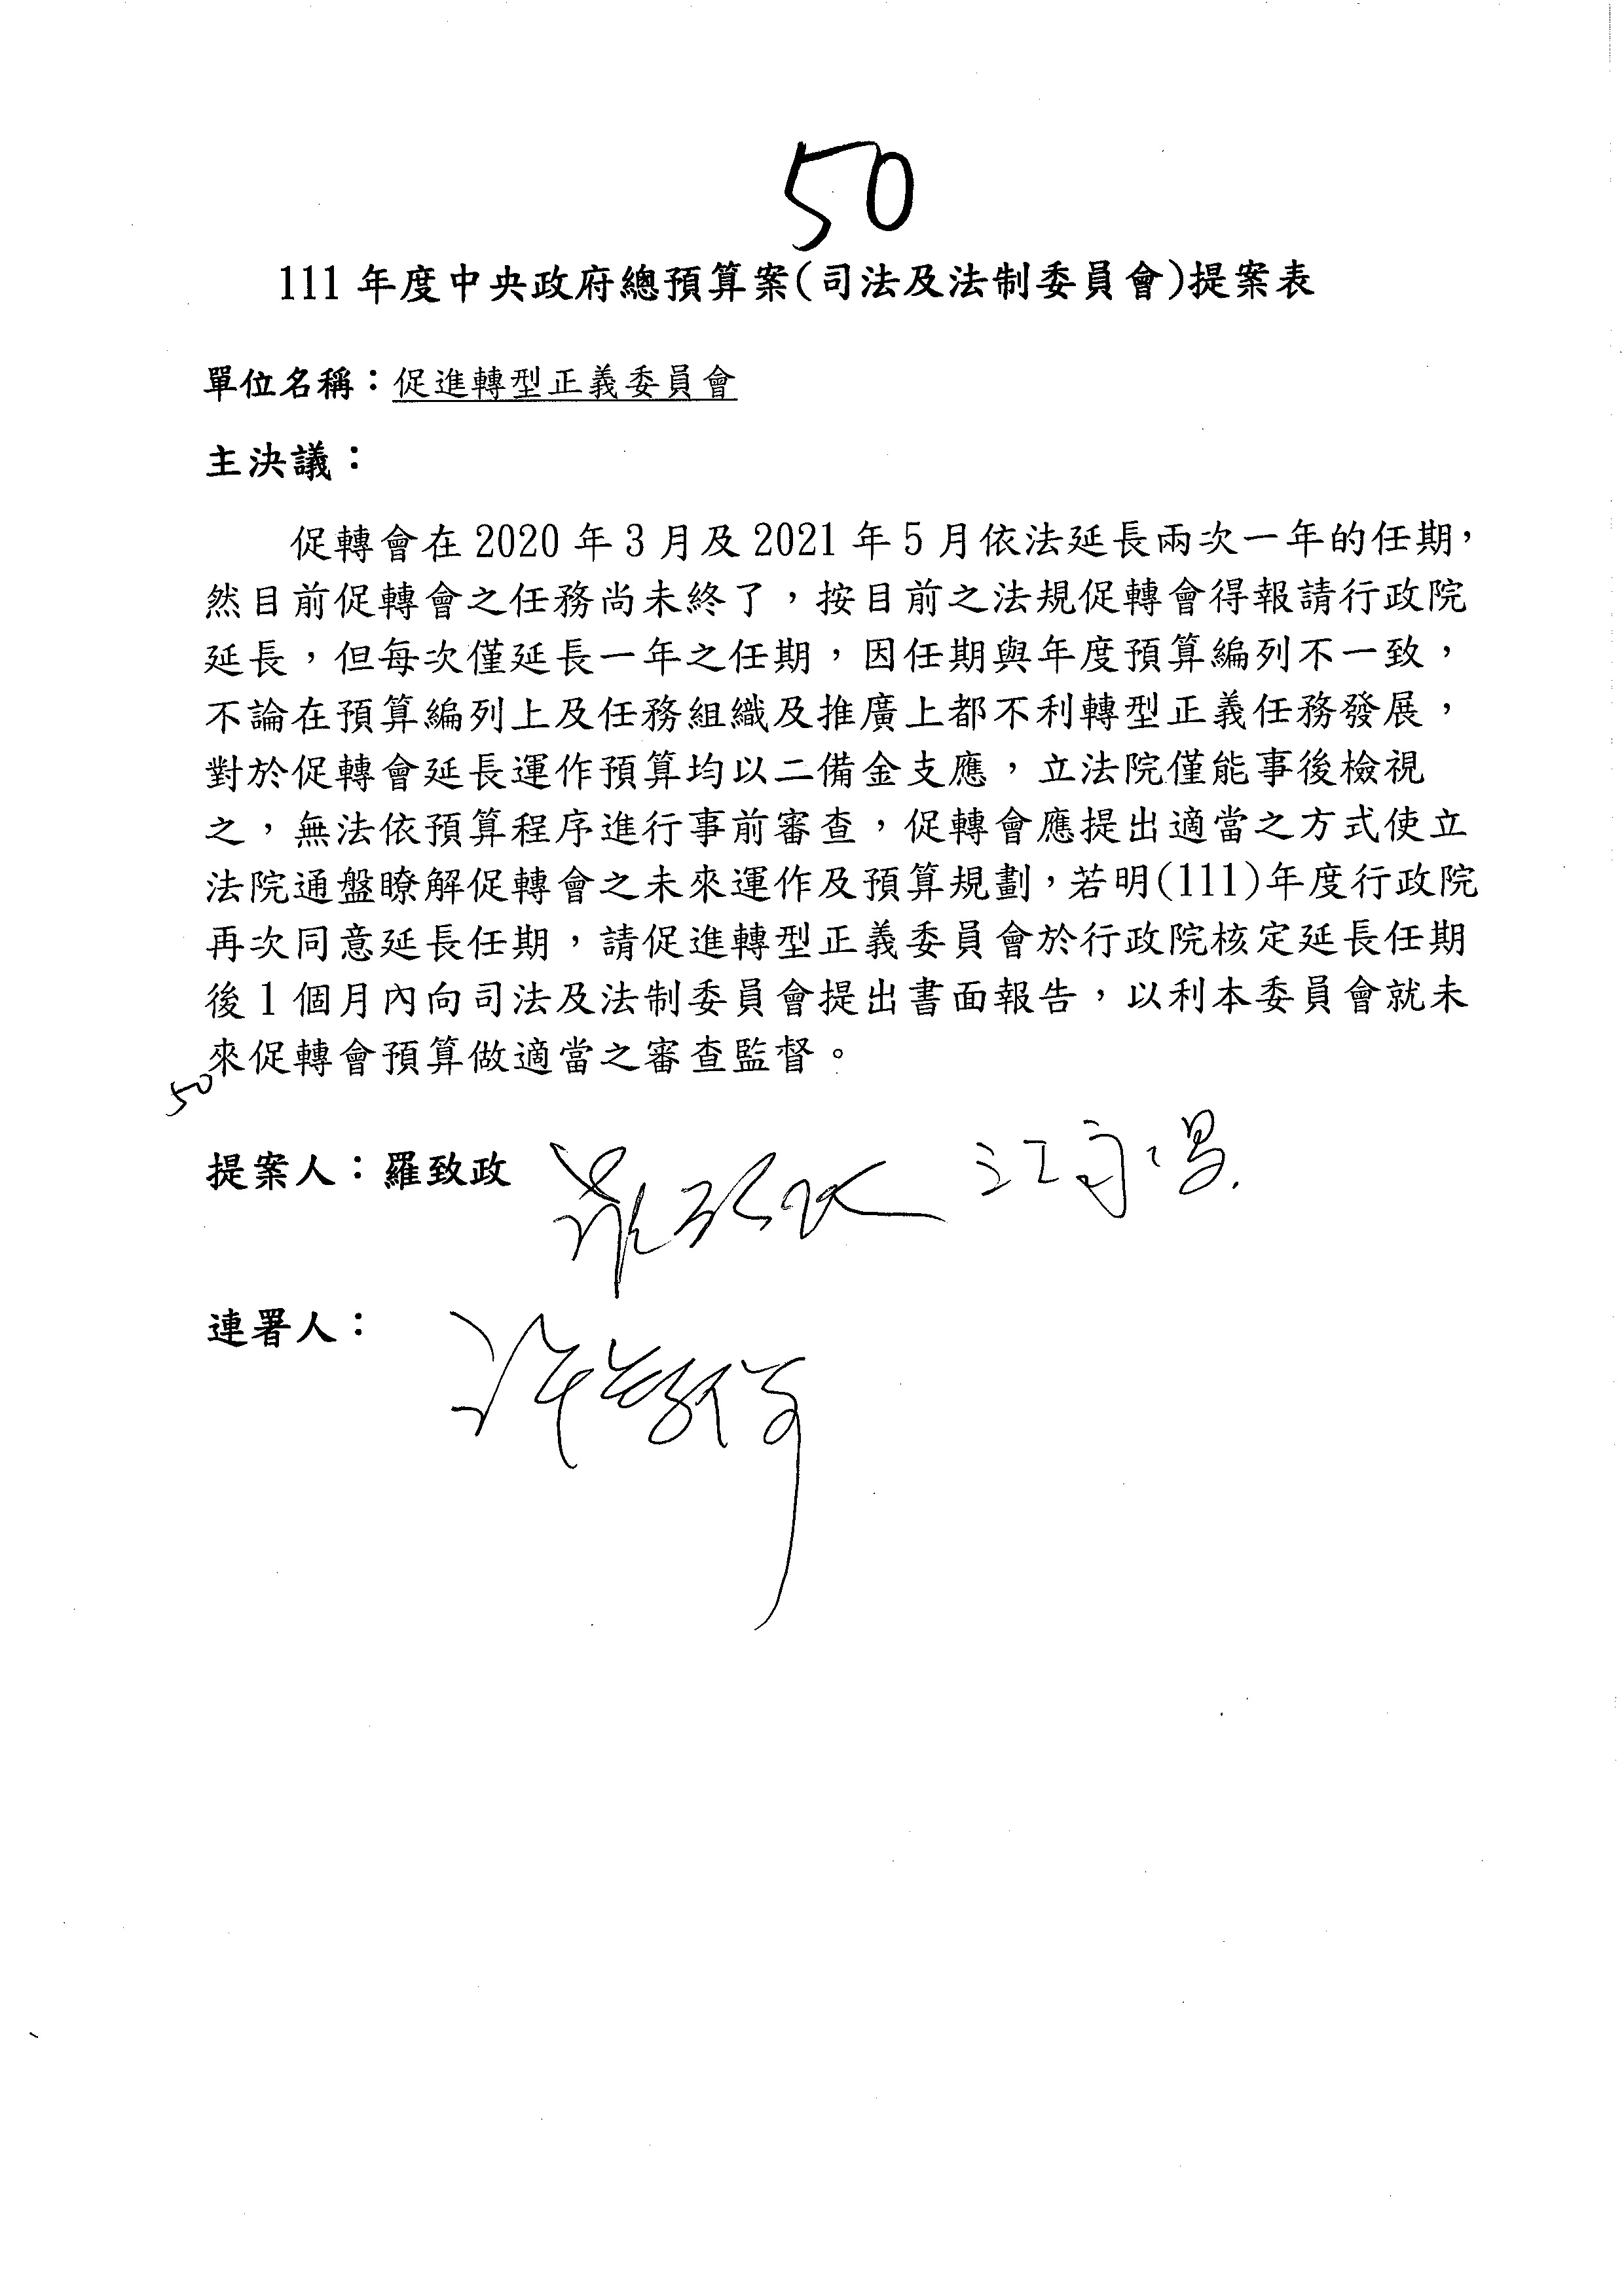 50
111 年度中央政府總預算案(司法及法制委員會)提案表
單位名稱：促進轉型正義委員會
主決議：
促轉會在 2020 年 3 月及 2021 年 5 月依法延長兩次一年的任期，
然目前促轉會之任務尚未終了，按目前之法規促轉會得報請行政院
延長，但每次僅延長一年之任期，因任期與年度預算編列不一致，
不論在預算編列上及任務組織及推廣上都不利轉型正義任務發展，
對於促轉會延長運作預算均以二備金支應，立法院僅能事後檢視
之，無法依預算程序進行事前審查，促轉會應提出適當之方式使立
法院通盤瞭解促轉會之未來運作及預算規劃，若明(111)年度行政院
再次同意延長任期，請促進轉型正義委員會於行政院核定延長任期
後 1 個月內向司法及法制委員會提出書面報告，以利本委員會就未
來促轉會預算做適當之審查監督。
50
提案人：羅致政 羅致政 江永昌
連署人：